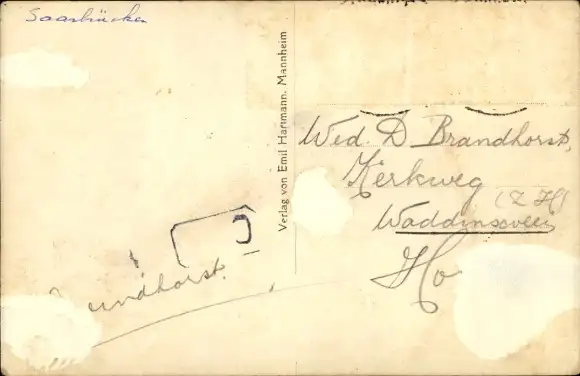 Saarbrücken
Verlag von Emil Hartmann, Mannheim
Wed. D Brandhorst,
Kerkweg
(Z H)
Waddinsveen
Ho